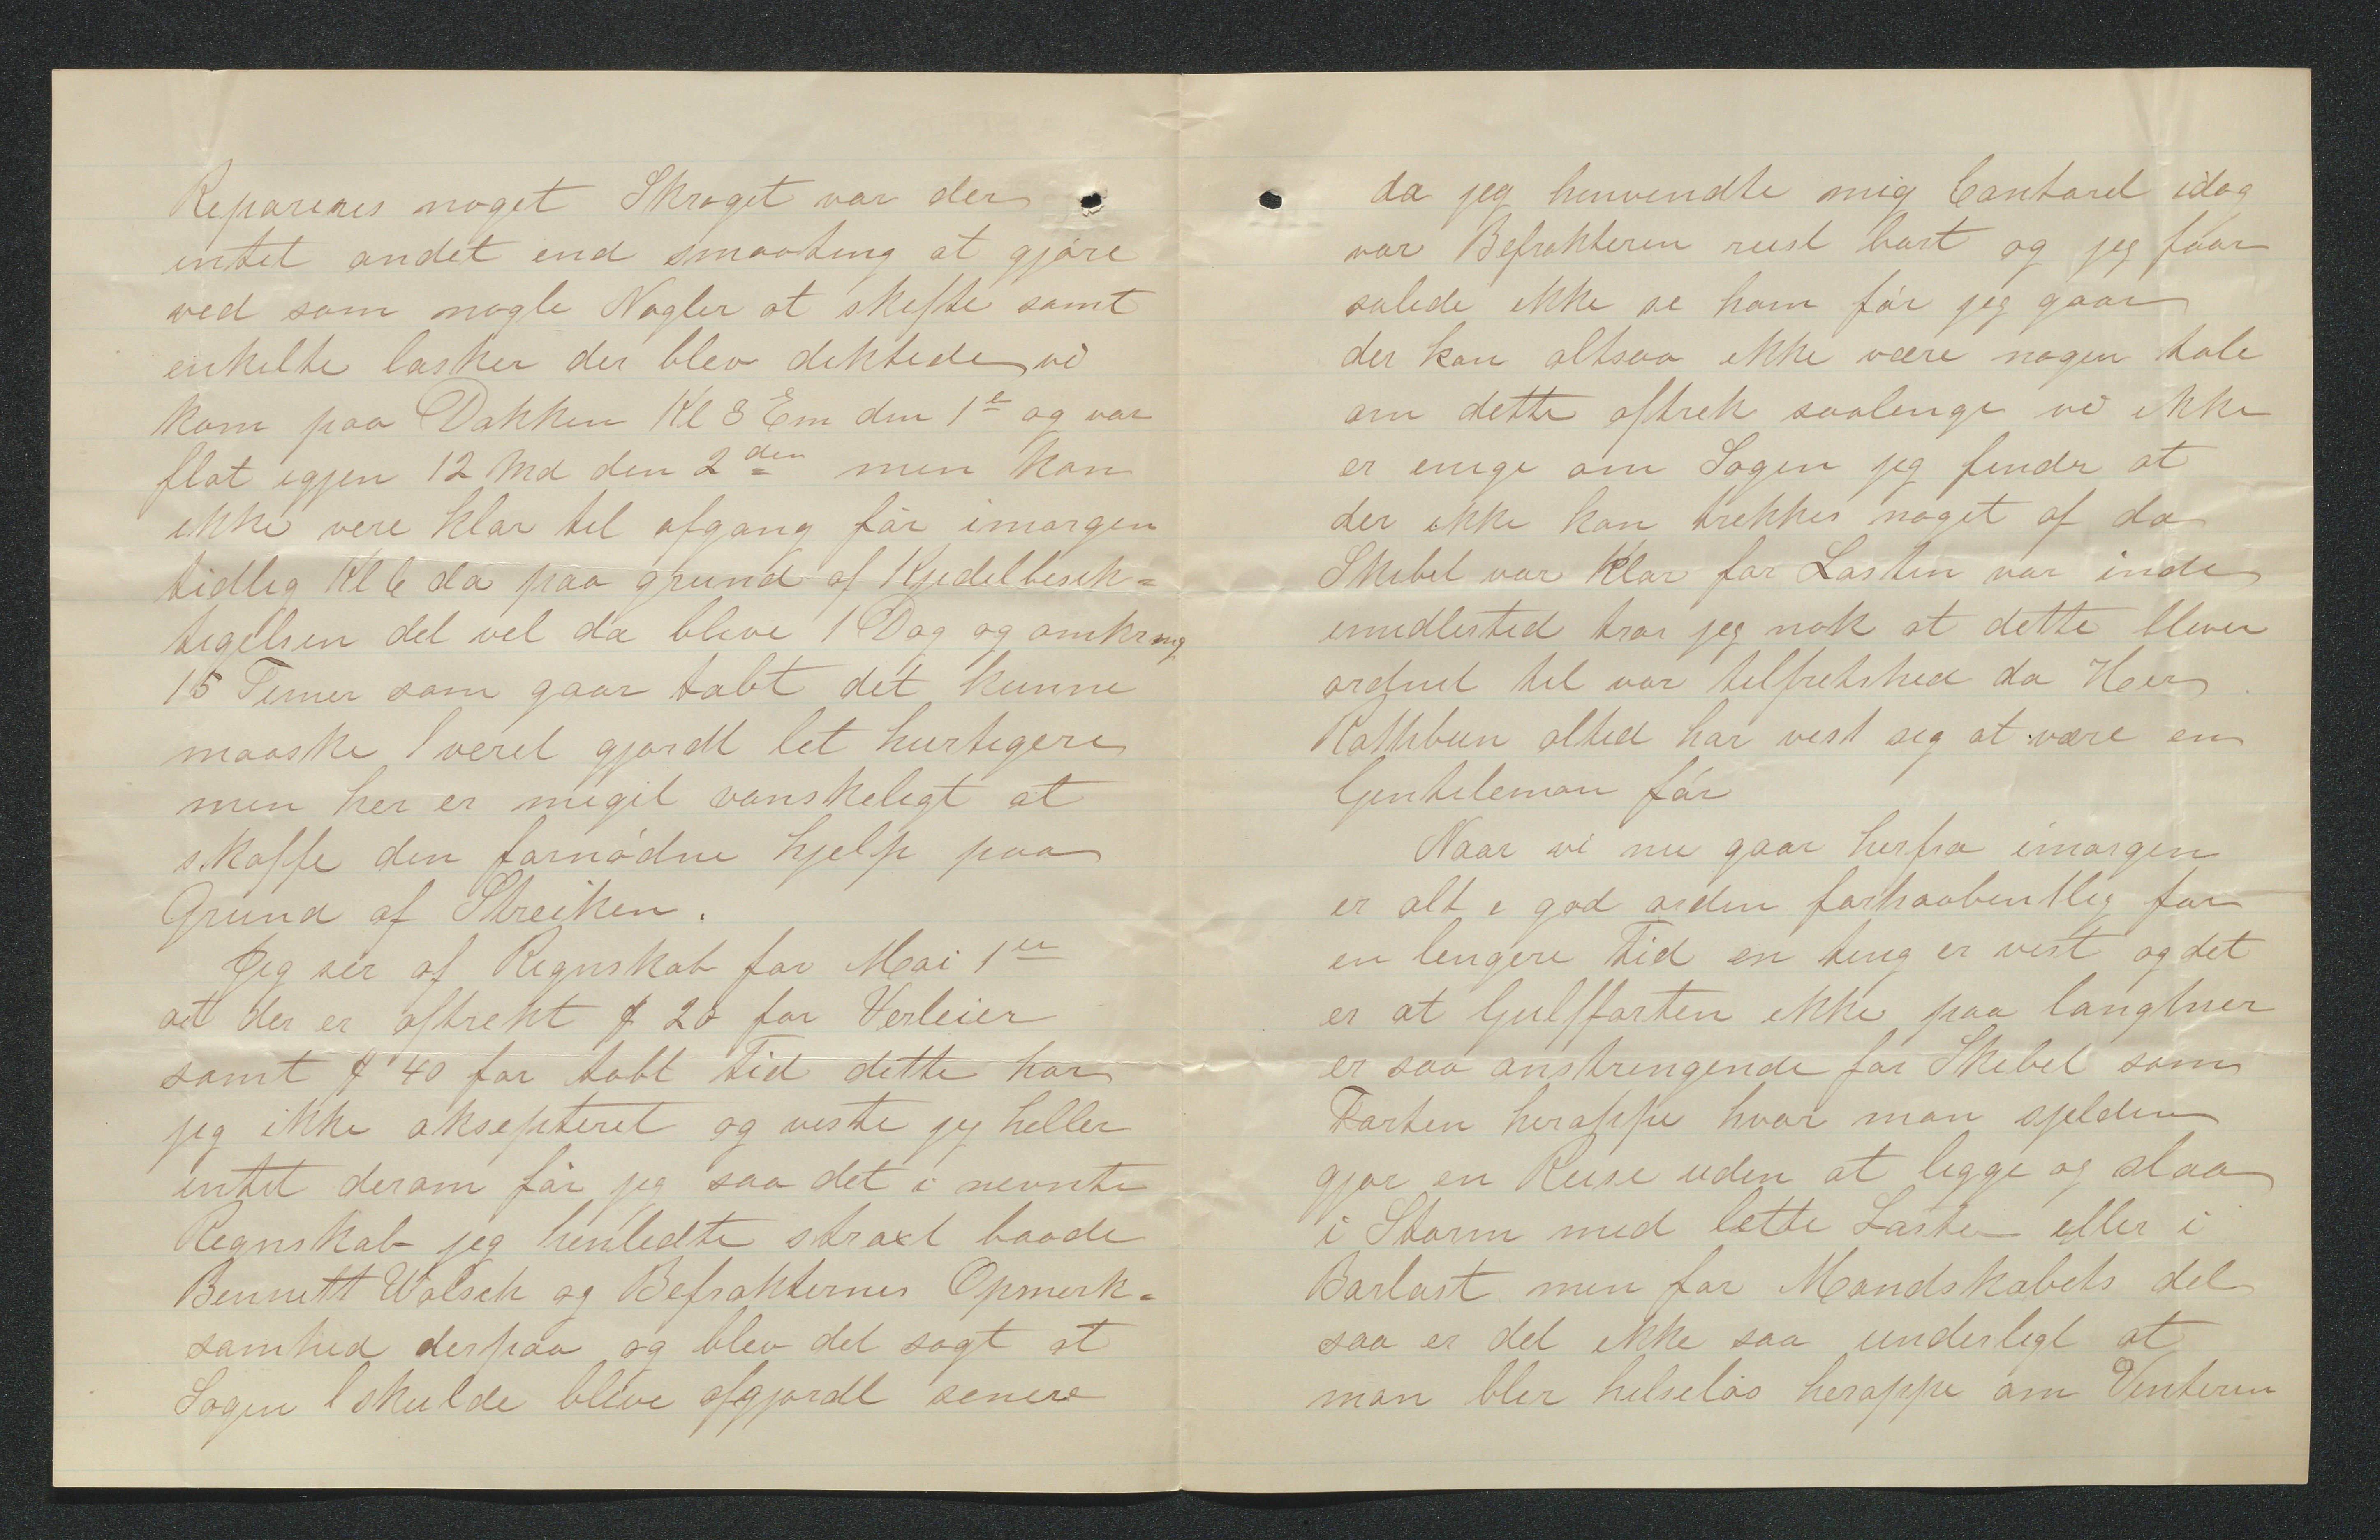 Repareres noget Skroget var der
intet andet end smaating at gjøre
ved som nogle Nagler at skifte samt
enkelte lasker der blev diktede vi
kom paa Dokken Kl 8 Em den 1e og var
flot igjen 12 Md den 2den men kan
ikke vere klar til afgang før imorgen
tidlig Kl 6 da paa grund af Kjedelbesik=
tigelsen det vel da blive 1 Dag og omkring
15 Timer som gaar tabt det kunne
maaske veret gjordt let hurtigere
men her er meget vanskeligt at
skaffe den fornødne hjelp paa
Grund af Streiken.
Jeg ser af Regnskab for Mai 1ste
at der er aftrekt $ 20 for Verleier
samt $ 40 for tabt tid dette har
jeg ikke aksepteret og viste jeg heller
intet derom før jeg saa det i nevnte
Regnskab jeg henledte straxt baade
Bennett Walsch og Befrakternes Opmerk=
somhed derpaa og blev det sagt at
Sagen skulde blive afgjordt senere
da jeg henvendte mig Contoret idag
var Befrakteren reist bort og jeg faar
salede ikke se ham før jeg gaar
der kan altsaa ikke være nogen tale
om dette aftrek saalenge vi ikke
er enige om Sagen jeg finder at
der ikke kan trekkes noget af da
Skibet var klar før Lasten var inde
imidlertid tror jeg nok at dette bliver
ordnet til vor tilfretshed da Herr
Rathbun altid har vist sig at være en
Gentleman før
Naar vi nu gaar herfra imorgen
er alt i god orden forhaabentlig for
en lengere Tid en ting er vist og det
er at Gulffarten ikke paa langtner
er saa anstrengende for Skibet som
Farten heroppe hvor man sjelden
gjør en Reise uden at ligge og slaa
i Storm med lette Laster eller i
Barlast men for Mandskabets del
saa er det ikke saa underligt at
man bler helseløs heroppe om Vinteren